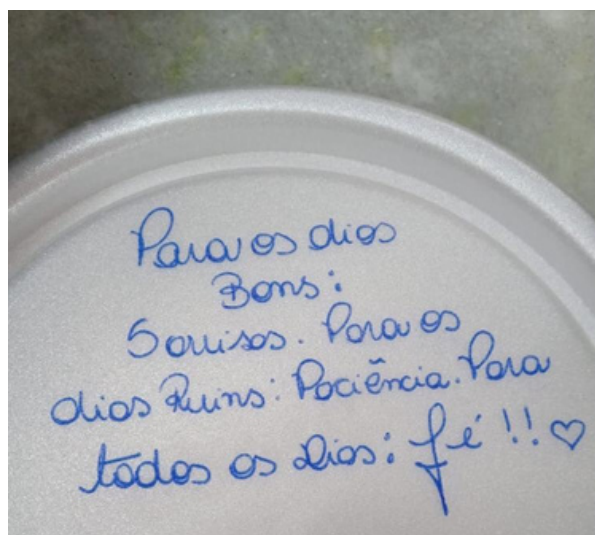 Para os dias
Bons:
Sorrisos. Para os
dias Ruins: Paciência. Para
todos os Dias: fé!! ♡